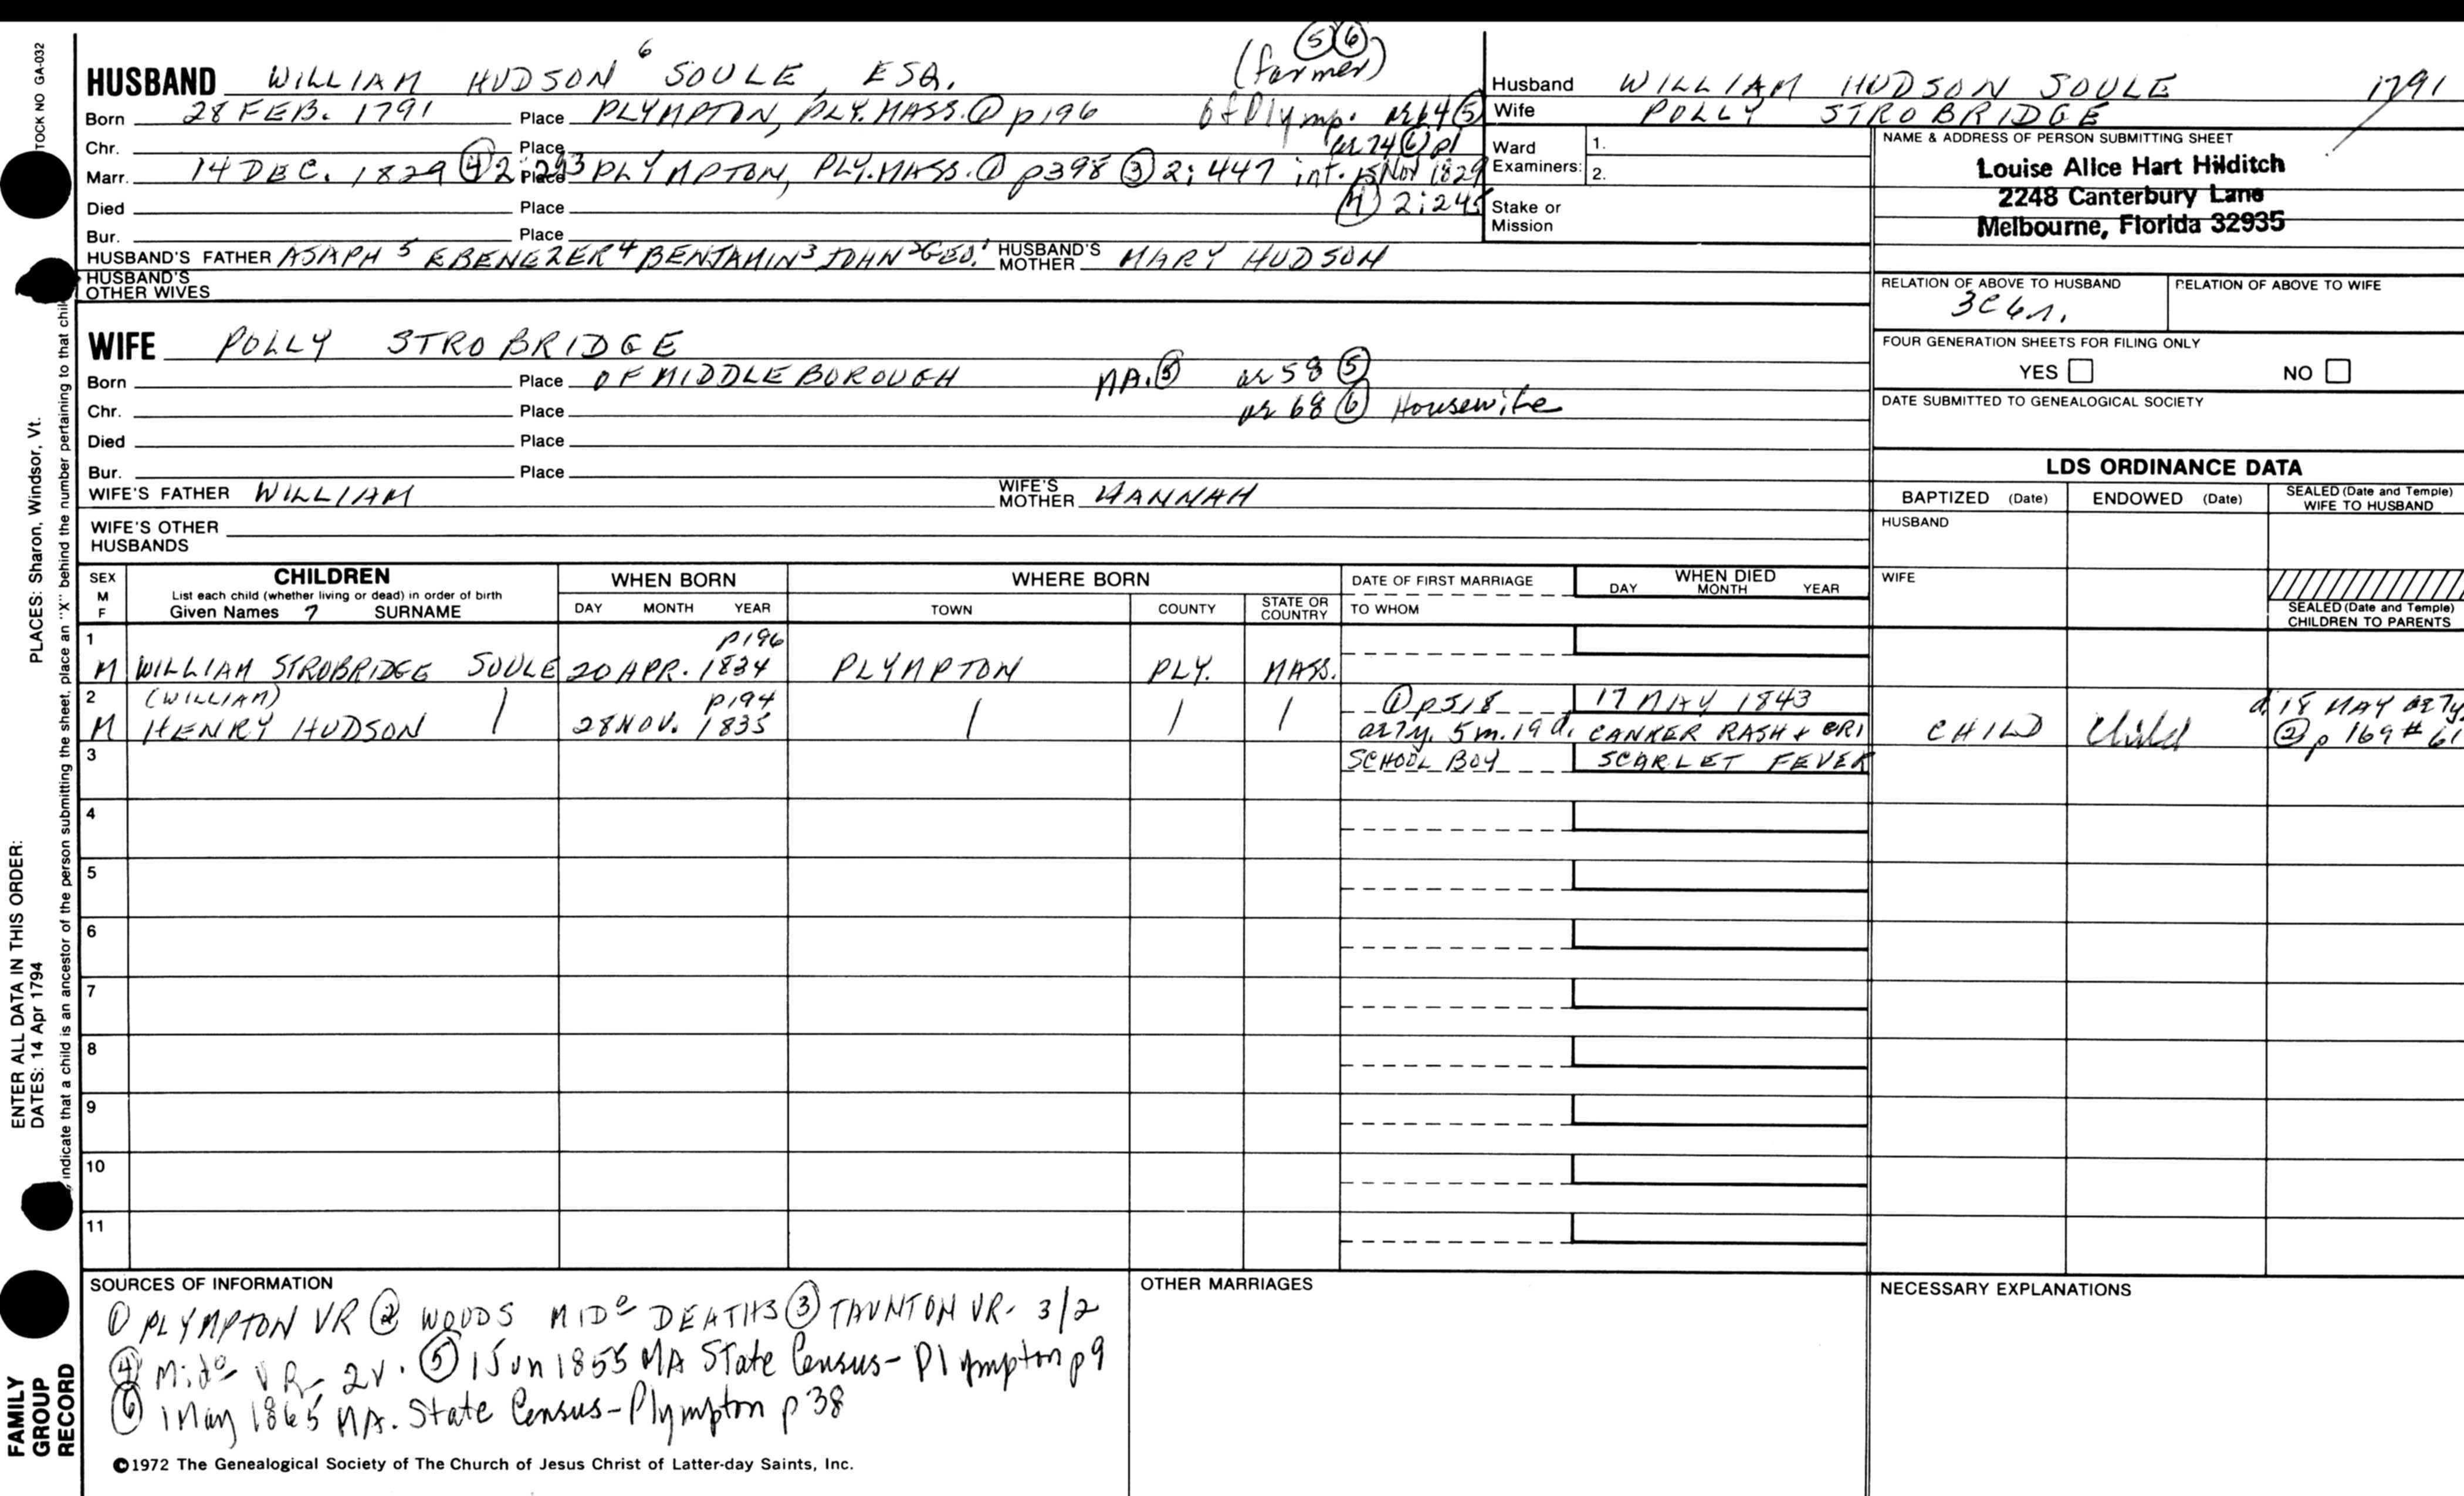 TOCK NO GA-032
PLACES: Sharon, Windsor, Vt.
ENTER ALL DATA IN THIS ORDER:
DATES: 14 Apr 1794
indicate that a child is an ancestor of the person submitting the sheet, place an "X" behind the number pertaining to that chil
FAMILY
GROUP
RECORD
(farmer) ⑤⑥
HUSBAND WILLIAM HUDSON 6 SOULE, ESQ.
Born 28 FEB. 1791 Place PLYMPTON, PLY. MASS. ① p196 of Plymp. ae 64 ⑤
Chr. Place ae 74 ⑥ p1
Marr. 14 DEC. 1829 ④ 2:293 Place PLYMPTON, PLY. MASS. ① p398 ③ 2:447 int. 15 Nov 1829
Died Place ④ 2:245
Bur. Place
HUSBAND'S FATHER ASAPH 5 EBENEZER 4 BENJAMIN 3 JOHN 2 GEO. 1 HUSBAND'S MOTHER MARY HUDSON
HUSBAND'S
OTHER WIVES
WIFE POLLY STROBRIDGE
Born Place OF MIDDLEBOROUGH MA. ⑤ ae 58 ⑤
Chr. Place ae 68 ⑥ Housewife
Died Place
Bur. Place
WIFE'S FATHER WILLIAM WIFE'S MOTHER HANNAH
WIFE'S OTHER
HUSBANDS
Husband WILLIAM HUDSON SOULE 1791
Wife POLLY STROBRIDGE
Ward 1.
Examiners: 2.
Stake or
Mission
NAME & ADDRESS OF PERSON SUBMITTING SHEET
Louise Alice Hart Hilditch
2248 Canterbury Lane
Melbourne, Florida 32935
RELATION OF ABOVE TO HUSBAND RELATION OF ABOVE TO WIFE
3C6r.
FOUR GENERATION SHEETS FOR FILING ONLY
YES NO
DATE SUBMITTED TO GENEALOGICAL SOCIETY
LDS ORDINANCE DATA
BAPTIZED (Date) ENDOWED (Date) SEALED (Date and Temple) WIFE TO HUSBAND
HUSBAND
WIFE
SEALED (Date and Temple)
CHILDREN TO PARENTS
SEX M F
CHILDREN
List each child (whether living or dead) in order of birth
Given Names 7 SURNAME
WHEN BORN
DAY MONTH YEAR
WHERE BORN
TOWN COUNTY STATE OR COUNTRY
DATE OF FIRST MARRIAGE
TO WHOM
WHEN DIED
DAY MONTH YEAR
1 p196
M WILLIAM STROBRIDGE SOULE 20 APR. 1834 PLYMPTON PLY. MASS.
2 (WILLIAM) p194 ① p518 17 MAY 1843 d. 18 MAY ae 7y
M HENRY HUDSON 28 NOV. 1835 ae 7y. 5m. 19 d. CANKER RASH + CHILD Child ② p 169 # 61
3 SCHOOL BOY SCARLET FEVER
4
5
6
7
8
9
10
11
SOURCES OF INFORMATION
① PLYMPTON VR ② WOODS MIDº DEATHS ③ TAUNTON VR - 3/2
④ Midº VR - 2v. ⑤ 1 Jun 1855 MA State Census - Plympton p9
⑥ 1 May 1865 MA. State Census - Plympton p 38
OTHER MARRIAGES
NECESSARY EXPLANATIONS
©1972 The Genealogical Society of The Church of Jesus Christ of Latter-day Saints, Inc.